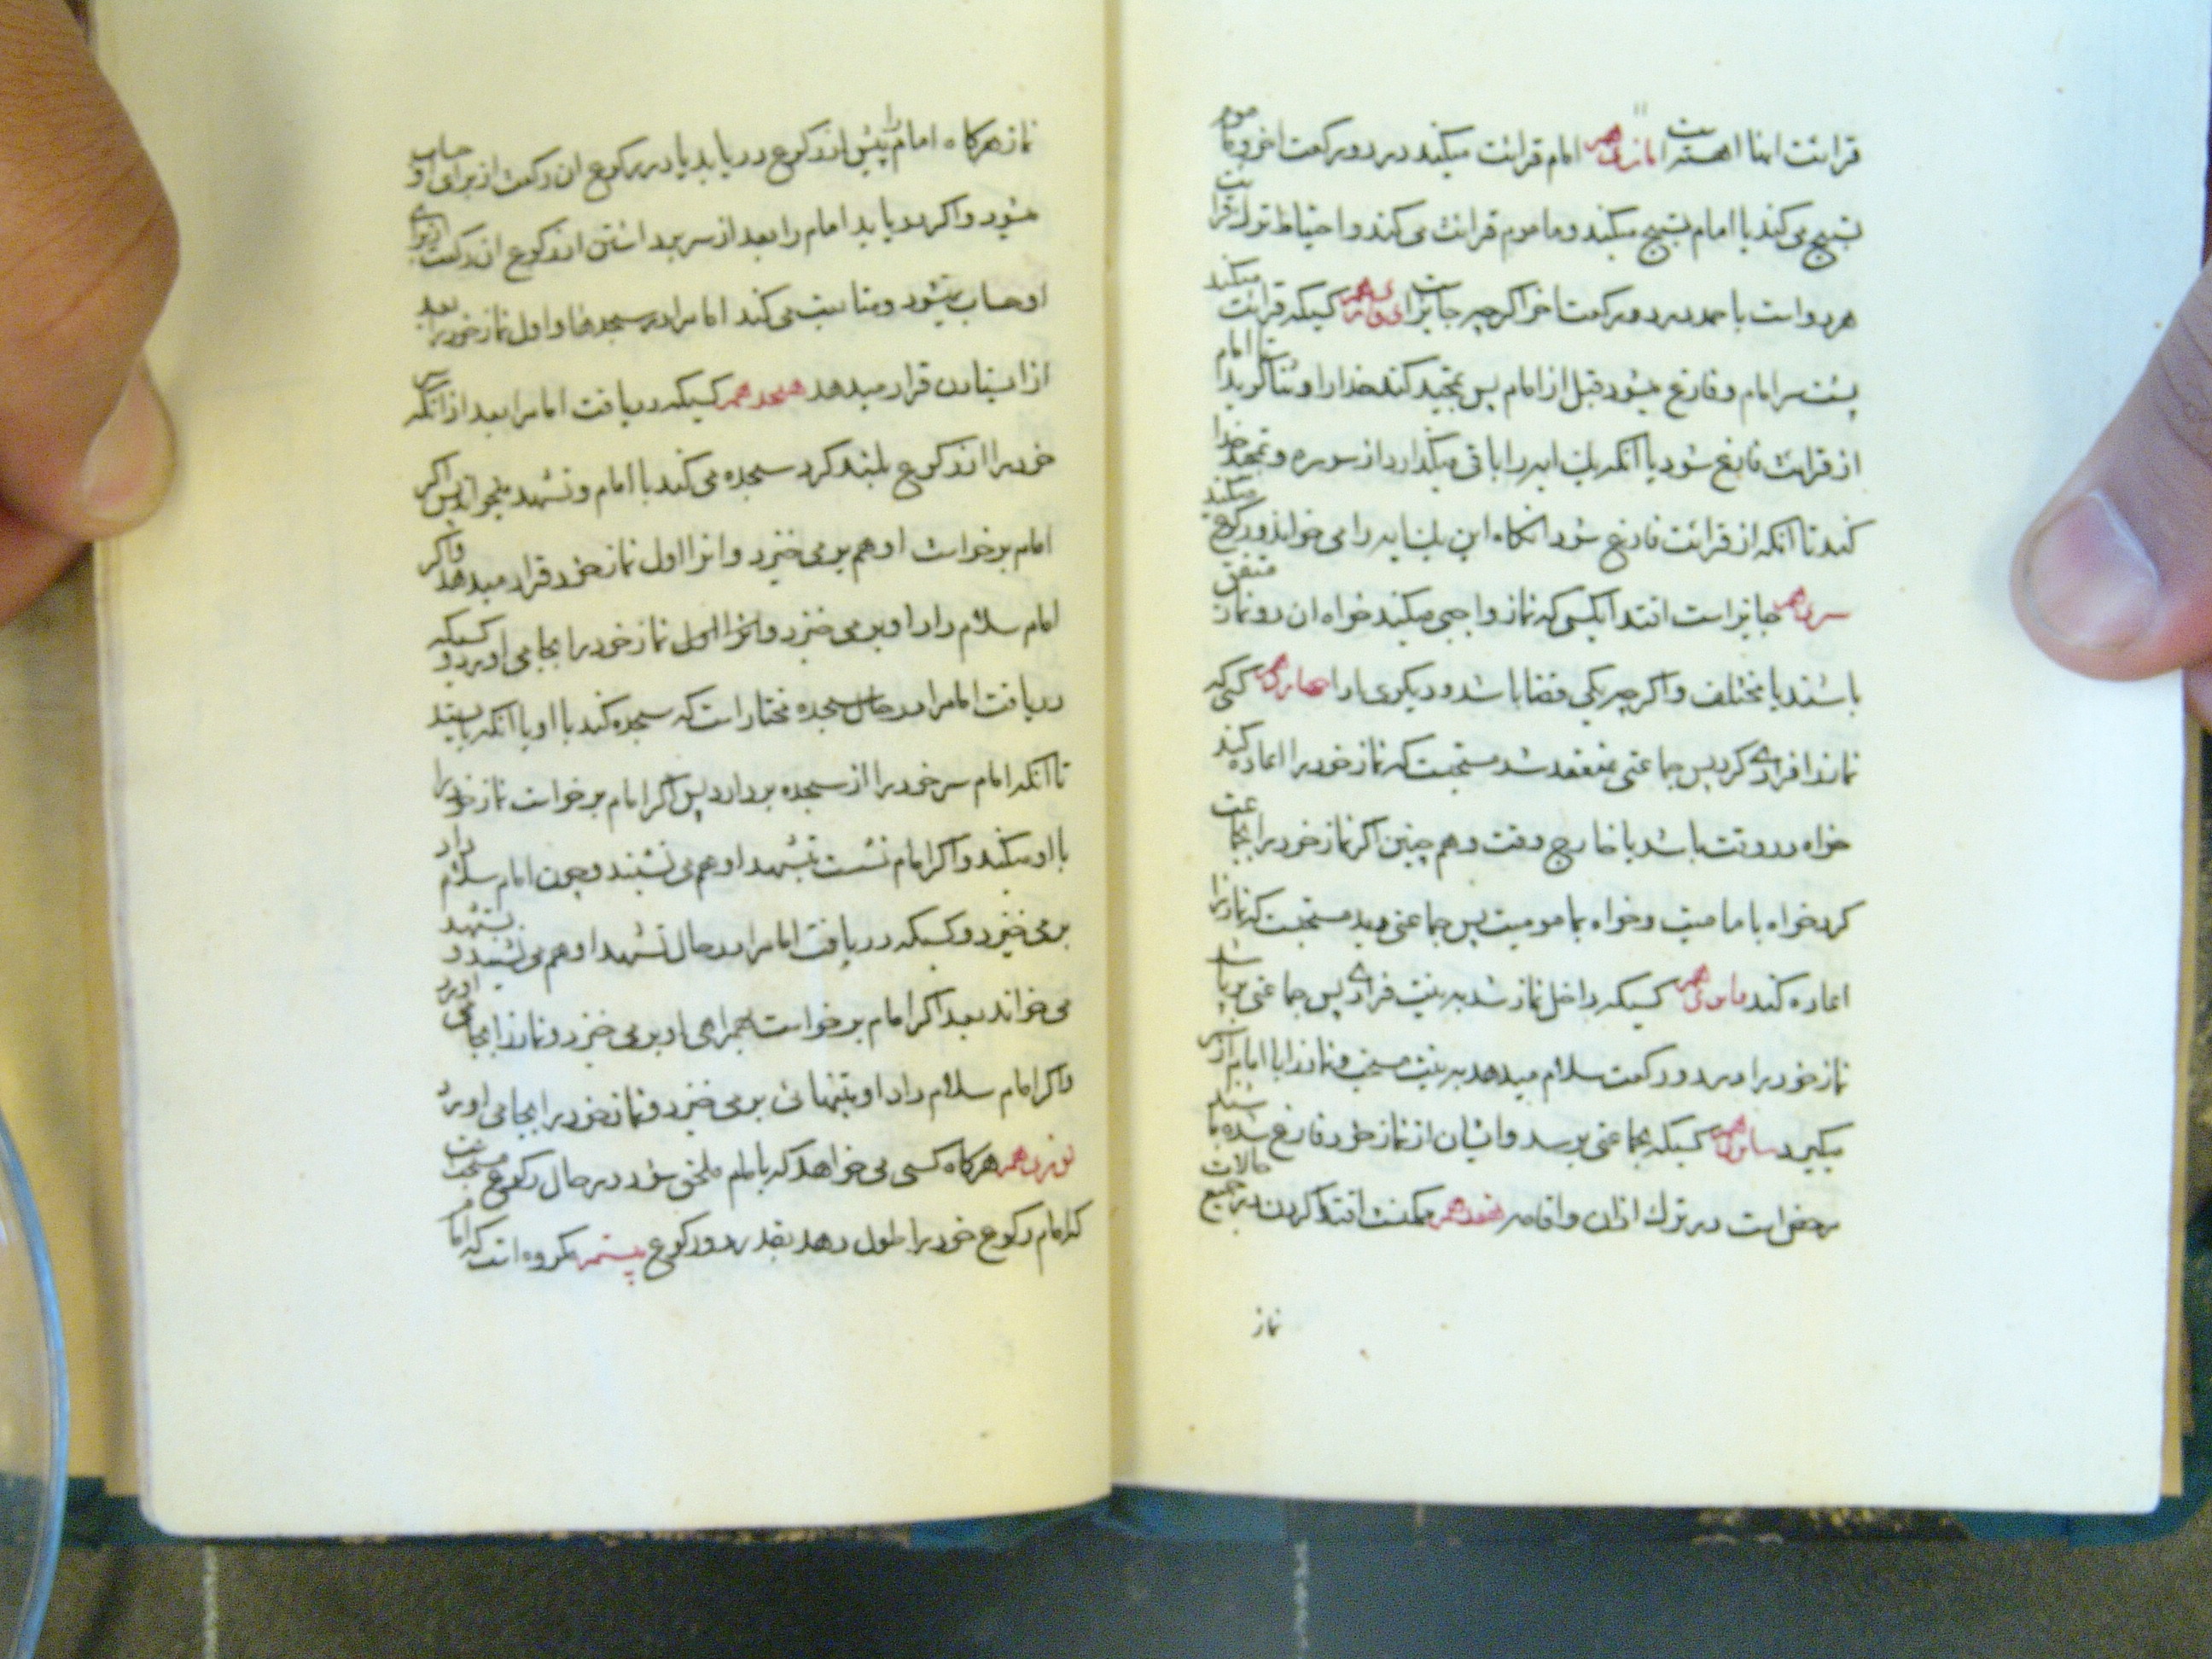 قرائت اینا اهسته است یازدهم امام قرائت میکند در دو رکعت اخر و ماموم
تسبیح می کند یا امام تسبیح میکند و ماموم قرائت می کند و احتیاط ترک قرائت
هر دو است یا حمد در دو رکعت اخر اگرچه جایز است دوازدهم کسیکه قرائت میکند
پشت سر امام و فارغ میشود قبل از امام پس تمجید کند خدا را و ثنا گوید تا امام
از قرائت فارغ شود یا آنکه یک ایه را باقی میگذارد از سوره و تمجید خدا
کند تا آنکه از قرائت فارغ شود انگاه این یک ایه را می خواند و رکوع میکند
سیزدهم جایز است اقتدا بکسی که نماز واجبی میکند خواه ان دو نماز متفق
باشند یا مختلف و اگرچه یکی قضا باشد و دیگری ادا چهاردهم کسی که
نماز را فرادی کرد پس جماعتی منعقد شد مستحبست که نماز خود را اعاده کند
خواه در وقت باشد یا خارج وقت و هم چنین اگر نماز خود را بجماعت
کرد خواه با مامیت و خواه بمامومیت پس جماعتی دید مستحبست که نماز را
اعاده کند پانزدهم کسیکه داخل نماز شد به نیت فرادی پس جماعتی برپا شد
نماز خود را در دو رکعت سلام میدهد به نیت مستحب و نماز را با امام از سر
میگیرد شانزدهم کسیکه بجماعتی برسد و ایشان از نماز خود فارغ شده باشند
مرخص است در ترک اذان و اقامه هفدهم ممکنست اقتدا کردن در جمیع حالات
نماز
نماز هرگاه امام را پیش از رکوع دریابد یا در رکوع ان رکعت از برای او حساب
میشود و اگر دریابد امام را بعد از سر برداشتن از رکوع ان رکعت از برای
او حساب نمیشود و متابعت می کند امام را در سجدها و اول نماز خود را بعد
از ایستادن قرار میدهد هیجدهم کسیکه دریافت امام را بعد از آنکه سر
خود را از رکوع بلند کرد سجده می کند با امام و تشهد میخواند پس اگر
امام برخواست او هم برمی خیزد و انرا اول نماز خود قرار میدهد و اگر
امام سلام داد او برمی خیزد و انرا اول نماز خود را بجا می اورد و کسیکه
دریافت امام را در حال سجده مختار است که سجده کند با او یا آنکه بایستد
تا آنکه امام سر خود را از سجده بردارد پس اگر امام برخواست نماز خود را
با او میکند و اگر امام نشست بتشهد او هم می نشیند و چون امام سلام داد
برمی خیزد و کسیکه دریافت امام را در حال تشهد او هم می نشیند و تشهد
می خواند بعد اگر امام برخواست همراهی او برمی خیزد و نماز را بجا می اورد
و اگر امام سلام داد او بتنهائی برمی خیزد و نماز خود را بجا می اورد
نوزدهم هرگاه کسی می خواهد که با امام ملحق شود در حال رکوع مستحب است
که امام رکوع خود را طول دهد بقدر دو رکوع بیستم مکروه است که امام